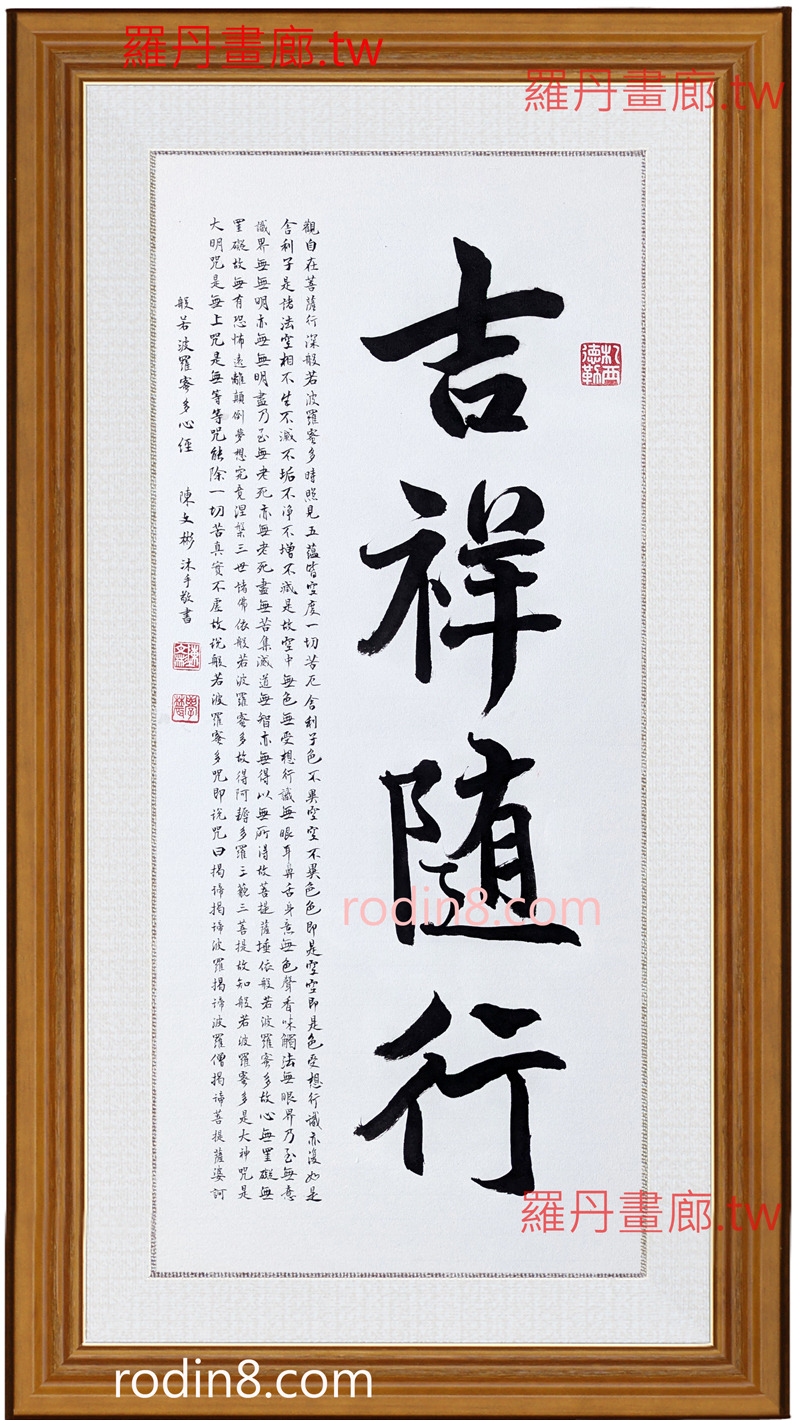 羅丹畫廊.tw
羅丹畫廊.tw
札西德勒
吉祥随行
觀自在菩薩行深般若波羅蜜多時照見五蘊皆空度一切苦厄舍利子色不異空空不異色色即是空空即是色受想行識亦復如是
舍利子是諸法空相不生不滅不垢不淨不增不減是故空中無色無受想行識無眼耳鼻舌身意無色聲香味觸法無眼界乃至無意
識界無無明亦無無明盡乃至無老死亦無老死盡無苦集滅道無智亦無得以無所得故菩提薩埵依般若波羅蜜多故心無罣礙無
罣礙故無有恐怖遠離顛倒夢想究竟涅槃三世諸佛依般若波羅蜜多故得阿耨多羅三藐三菩提故知般若波羅蜜多是大神咒是
大明咒是無上咒是無等等咒能除一切苦真實不虛故說般若波羅蜜多咒即說咒曰揭諦揭諦波羅揭諦波羅僧揭諦菩提薩婆訶
般若波羅蜜多心經 陳文彬沐手敬書
rodin8.com
羅丹畫廊.tw
rodin8.com